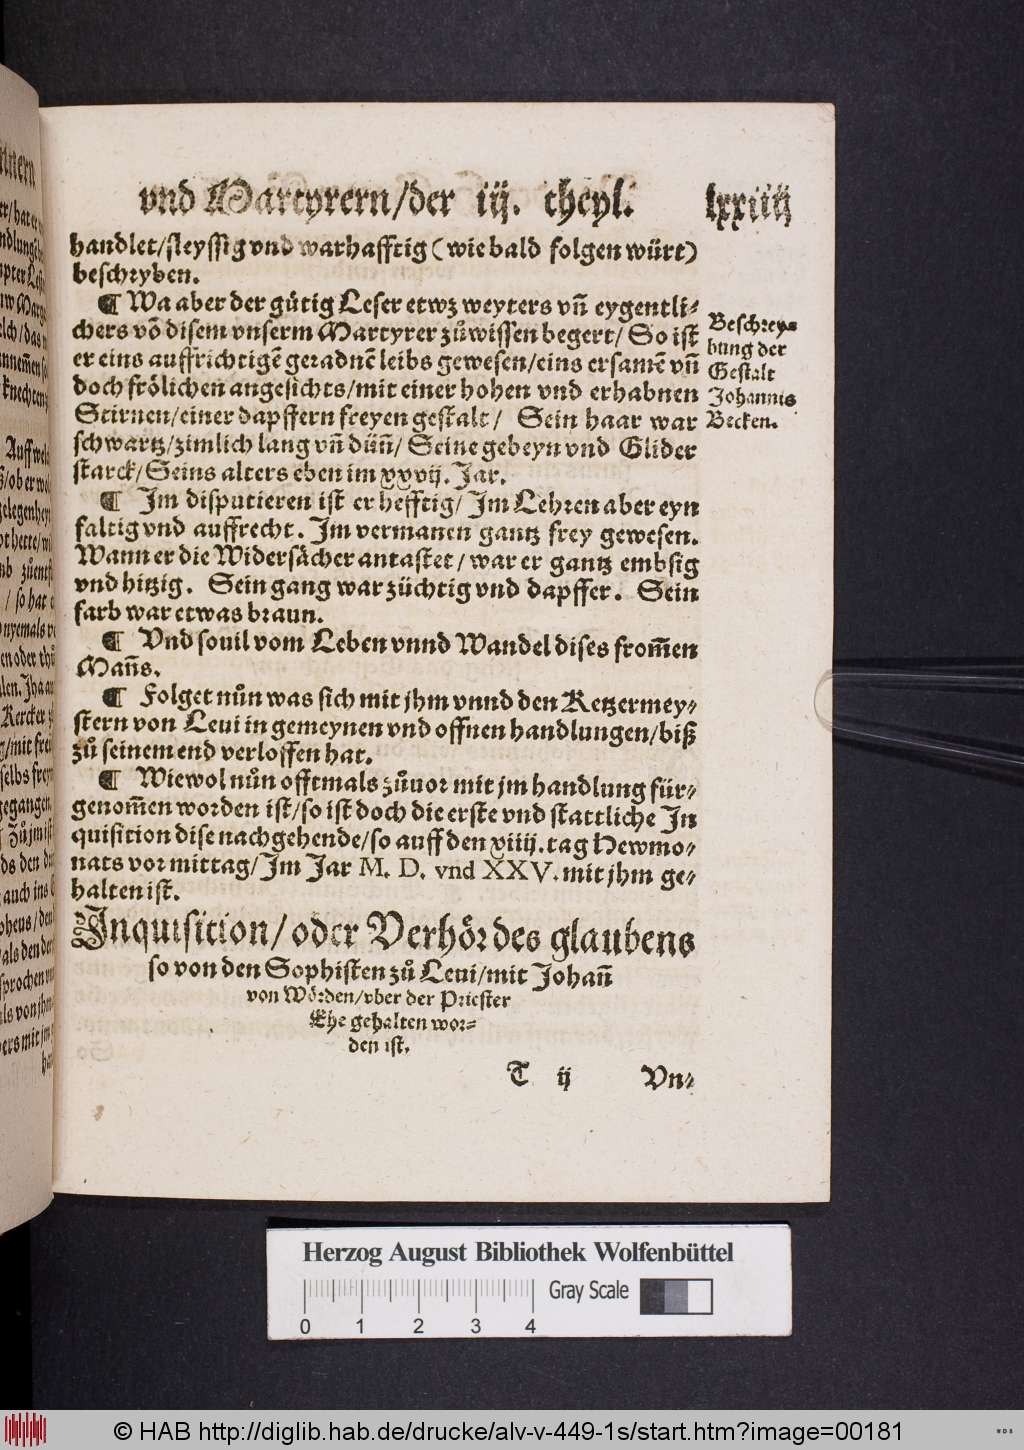 vnd Martyrern/der iij. theyl. lxxiiij
handlet/fleyssig vnd warhafftig (wie bald folgen würt)
beschryben.
¶ Wa aber der gütig Leser etwz weyters vñ eygentli⸗
chers võ disem vnserm Martyrer zůwissen begert/ So ist
er eins auffrichtigẽ geradnẽ leibs gewesen/eins ersamẽ vñ
doch frölichen angesichts/mit einer hohen vnd erhabnen
Stirnen/einer dapffern freyen gestalt/ Sein haar war
schwartz/zimlich lang vñ düñ/ Seine gebeyn vnd Glider
starck/Seins alters eben im xxvij. Jar.
Beschrey⸗
bung der
Gestalt
Johannis
Becken.
¶ Im disputieren ist er hefftig/ Im Lehren aber eyn
faltig vnd auffrecht. Im vermanen gantz frey gewesen.
Wann er die Widersächer antastet/ war er gantz embsig
vnd hitzig. Sein gang war züchtig vnd dapffer. Sein
farb war etwas braun.
¶ Vnd souil vom Leben vnnd Wandel dises from̃en
Mañs.
¶ Folget nůn was sich mit jhm vnnd den Ketzermey⸗
stern von Leui in gemeynen vnd offnen handlungen/biß
zů seinem end verloffen hat.
¶ Wiewol nůn offtmals zůuor mit jm handlung für⸗
genom̃en worden ist/so ist doch die erste vnd stattliche In
quisition dise nachgehende/so auff den xiiij. tag Hewmo⸗
nats vor mittag/Im Jar M. D. vnd XXV. mit jhm ge⸗
halten ist.
Inquisition/oder Verhör des glaubens
so von den Sophisten zů Leui/mit Johañ
von Wörden/vber der Priester
Ehe gehalten wor⸗
den ist.
T ij Vn⸗
Herzog August Bibliothek Wolfenbüttel
Gray Scale
0 1 2 3 4
© HAB http://diglib.hab.de/drucke/alv-v-449-1s/start.htm?image=00181